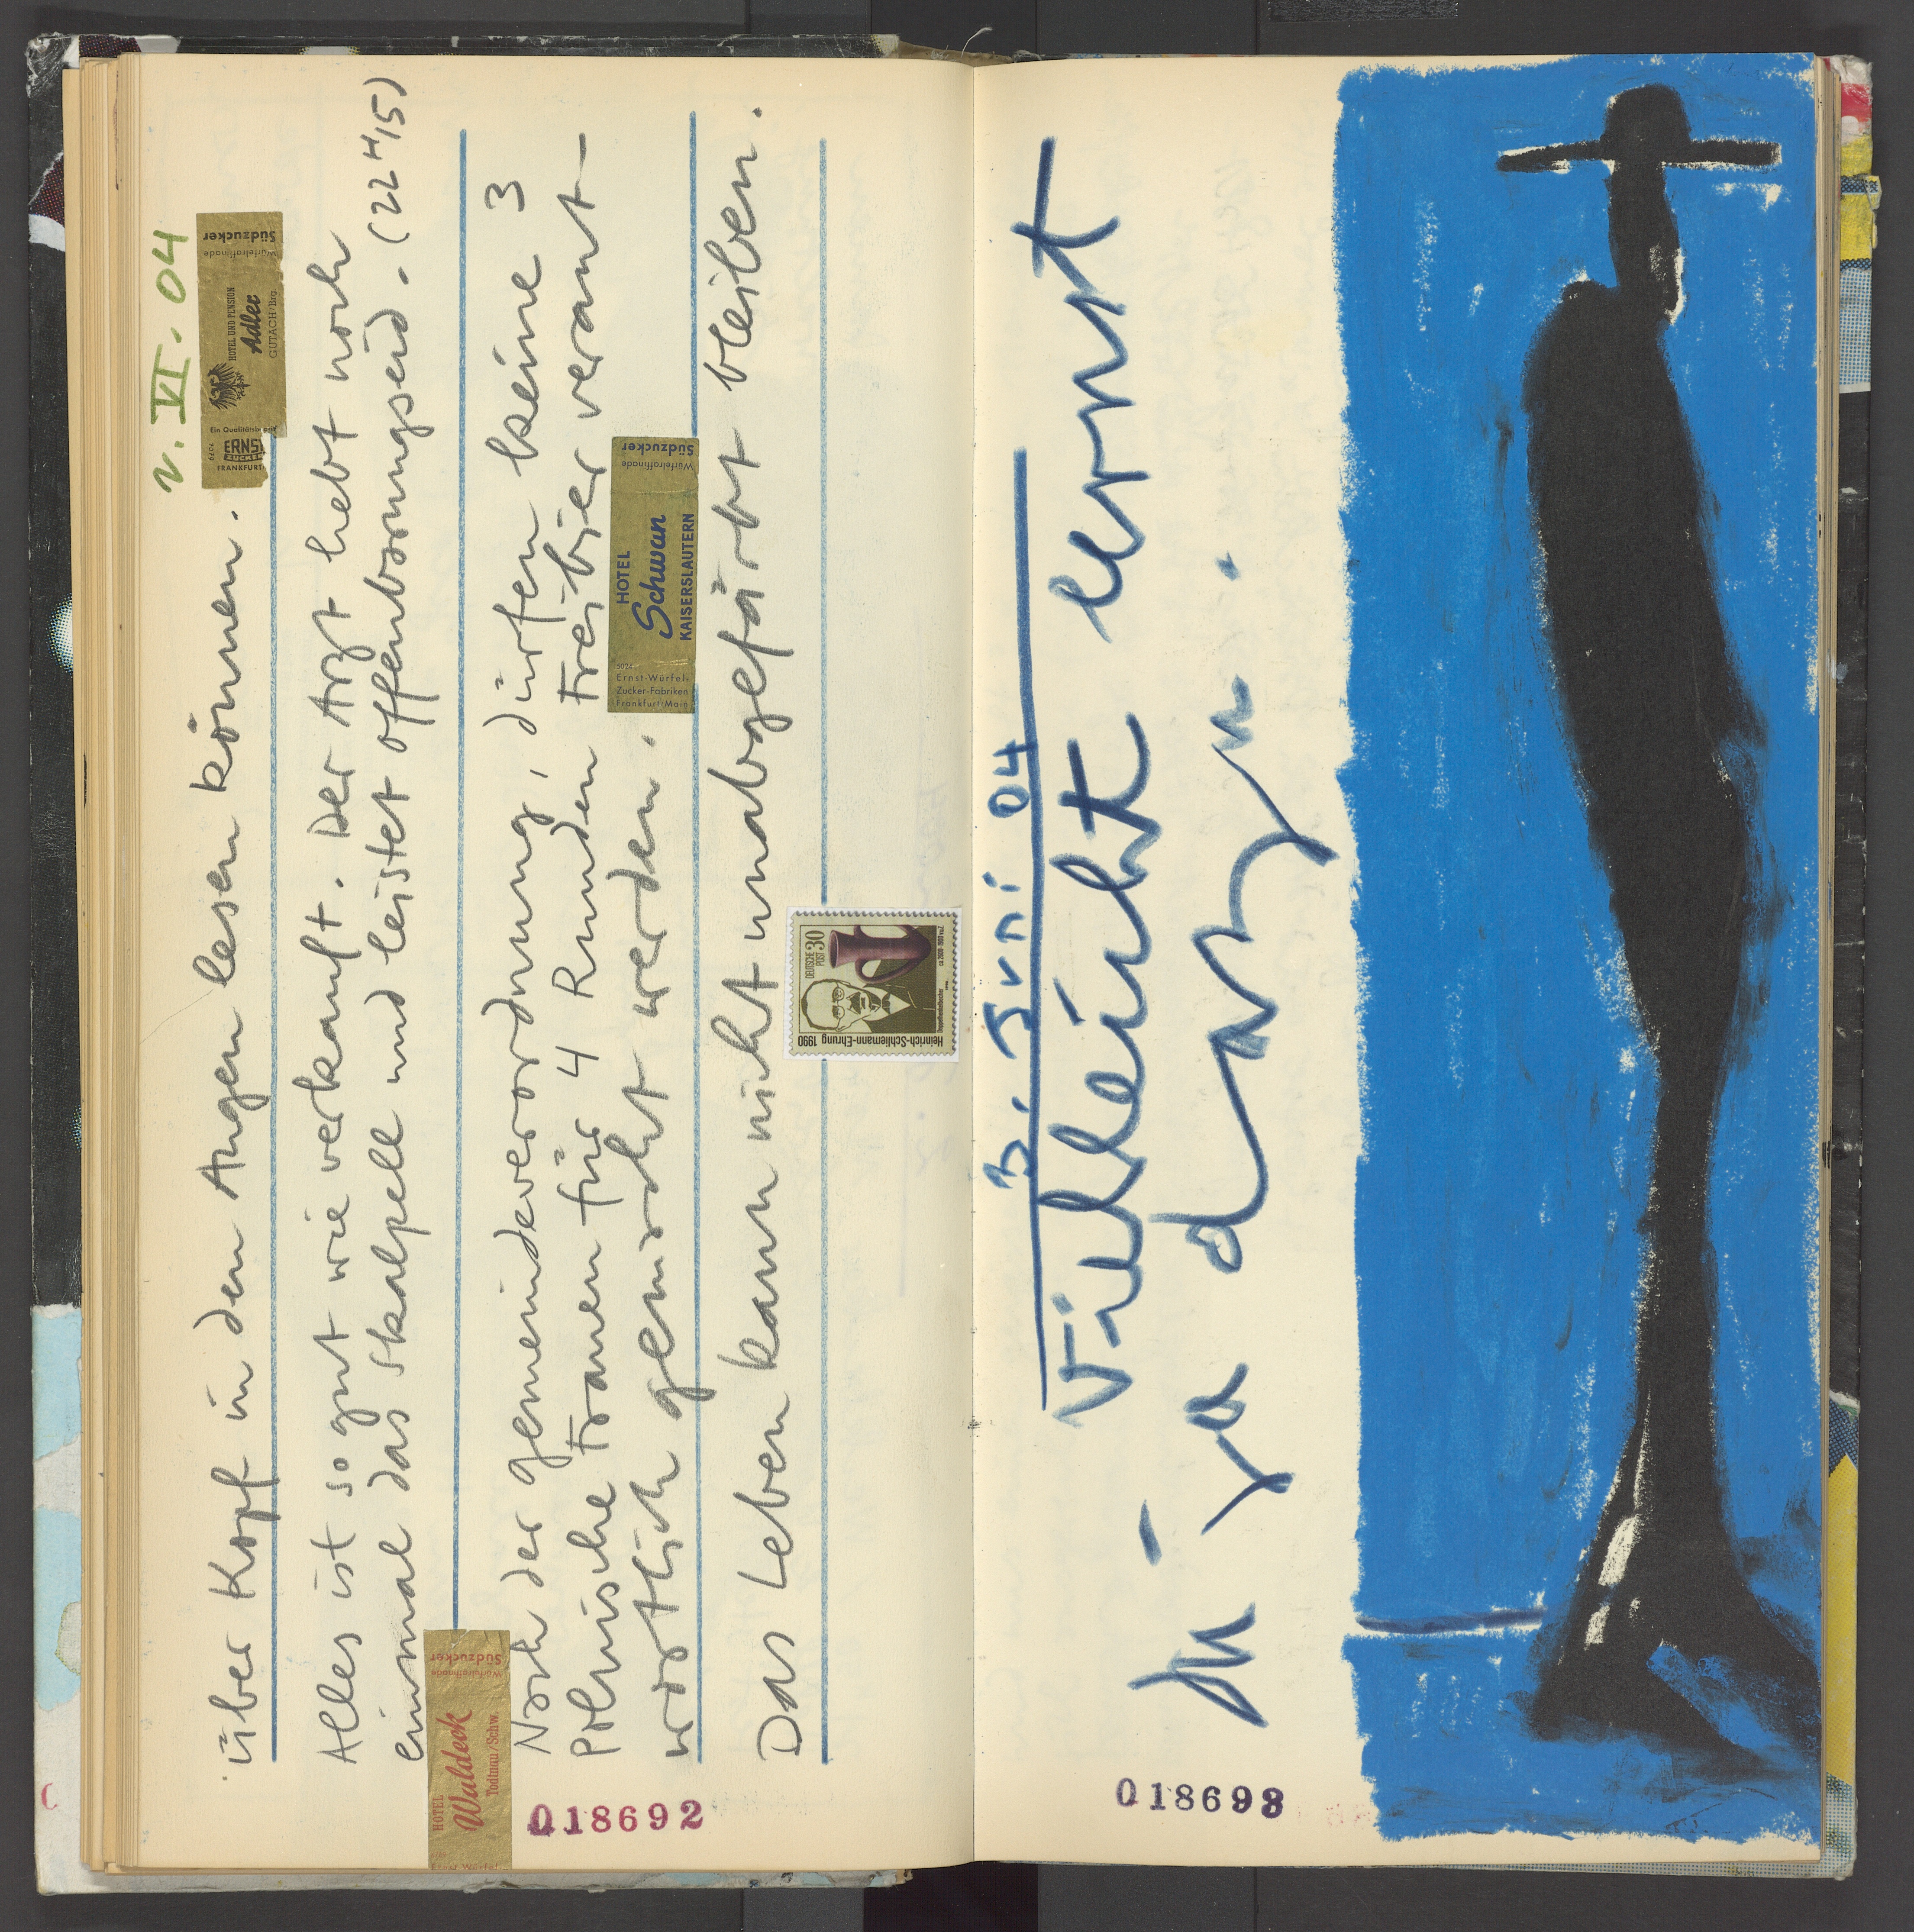 v. VI. 04
über Kopf in den Augen lesen können.
ERNST
ZUCKER
FRANKFURT
HOTEL UND PENSION
Adler
GUTACH/Brg.
Würfelraffinade
Südzucker
Alles ist so gut wie verkauft. Der Arzt hebt noch
einmal das Skalpell und leistet offenbarungseid. (22 H 15)
HOTEL
Waldeck
Todtnau/Schw.
Würfelraffinade
Südzucker
Nach der gemeindeverordnung, dürfen keine 3
Polnische Frauen für 4 Runden Freibier verant-
wortlich gemacht werden.
5024
Ernst-Würfel-
Zucker-Fabriken
Frankfurt/Main
HOTEL
Schwan
KAISERSLAUTERN
Würfelraffinade
Südzucker
Das Leben kann nicht unabgefärbt bleiben.
Heinrich-Schliemann-Ehrung 1990
DEUTSCHE
POST 30
018692
3. Juni 04
Vielleicht lernt
man ja dazu.
018693